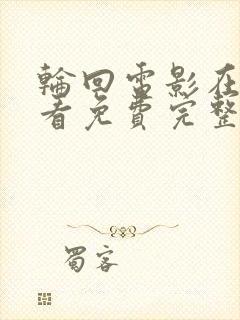 輪回電影在
看免費完整
蜀客